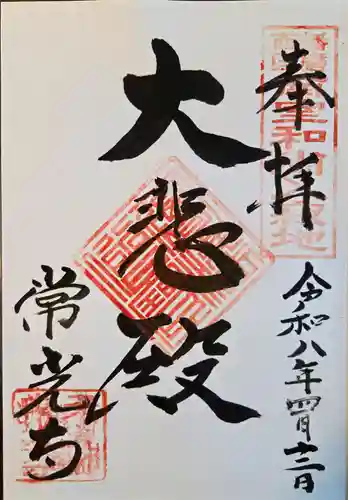 奉拝
大悲殿
令和八年四月十二日
常光寺